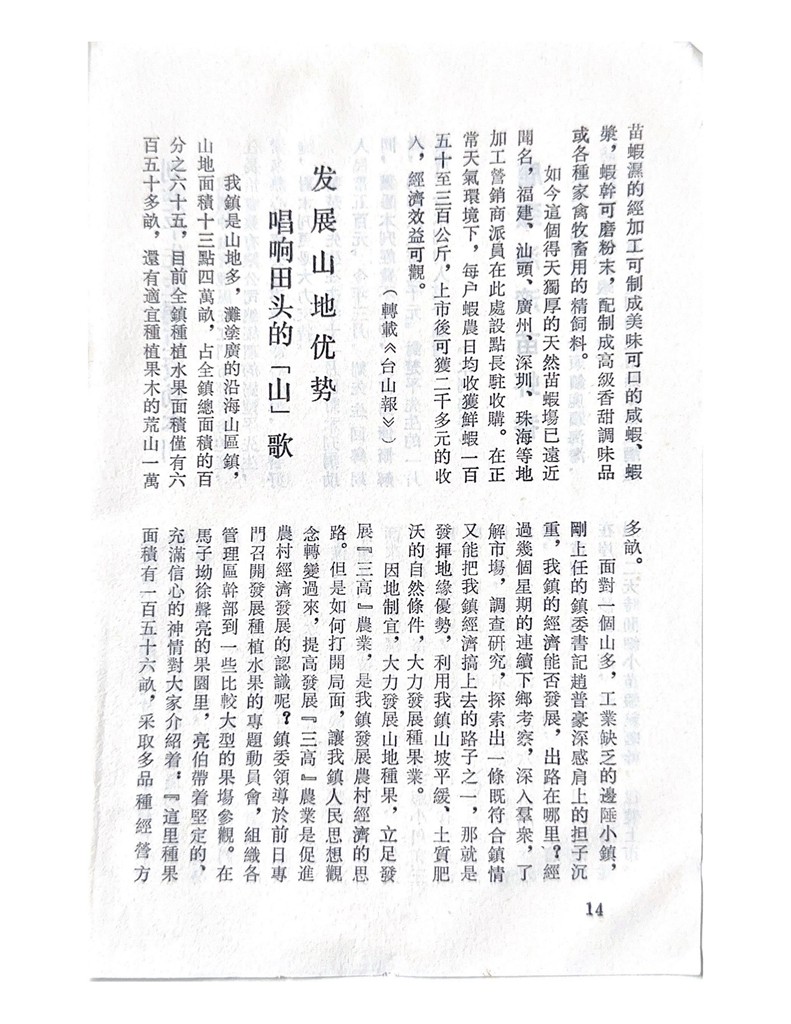 苗蝦濕的經加工可制成美味可口的咸蝦、蝦
漿，蝦幹可磨粉末，配制成高級香甜調味品
或各種家禽牧畜用的精飼料。
如今這個得天獨厚的天然苗蝦塲已遠近
聞名，福建、汕頭、廣州、深圳、珠海等地
加工營銷商派員在此處設點長駐收購。在正
常天氣環境下，每户蝦農日均收獲鮮蝦一百
五十至三百公斤，上市後可獲二千多元的收
入，經濟效益可觀。
（轉載《台山報》）
发展山地优势
唱响田头的「山」歌
我鎮是山地多，灘塗廣的沿海山區鎮，
山地面積十三點四萬畝，占全鎮總面積的百
分之六十五，目前全鎮種植水果面積僅有六
百五十多畝，還有適宜種植果木的荒山一萬
多畝。
面對一個山多，工業缺乏的邊陲小鎮，
剛上任的鎮委書記趙普豪深感肩上的担子沉
重，我鎮的經濟能否發展，出路在哪里？經
過幾個星期的連續下鄉考察，深入羣衆，了
解市塲，調查研究，探索出一條既符合鎮情
又能把我鎮經濟搞上去的路子之一，那就是
發揮地緣優勢，利用我鎮山坡平緩、土質肥
沃的自然條件，大力發展種果業。
因地制宜，大力發展山地種果，立足發
展『三高』農業，是我鎮發展農村經濟的思
路。但是如何打開局面，讓我鎮人民思想觀
念轉變過來，提高發展『三高』農業是促進
農村經濟發展的認識呢？鎮委領導於前日專
門召開發展種植水果的專題動員會，組織各
管理區幹部到一些比較大型的果塲參觀。在
馬子坳徐聲亮的果園里，亮伯帶着堅定的，
充滿信心的神情對大家介紹着：『這里種果
面積有一百五十六畝，采取多品種經營方
14